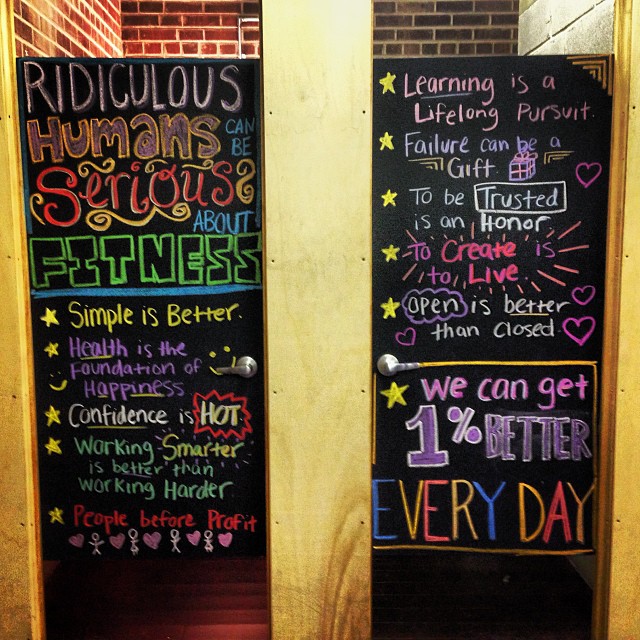 RIDICULOUS
HUMANS CAN BE
SERiOUS
ABOUT
FITNESS
Simple is Better.
Health is the
Foundation of
Happiness
Confidence is HOT
Working Smarter
is better than
Working Harder
People before Profit
Learning is a
Lifelong Pursuit.
Failure can be a
Gift
To be Trusted
is an Honor
To Create is
to Live
OPEN is better
than Closed
we can get
1% BETTER
EVERY DAY